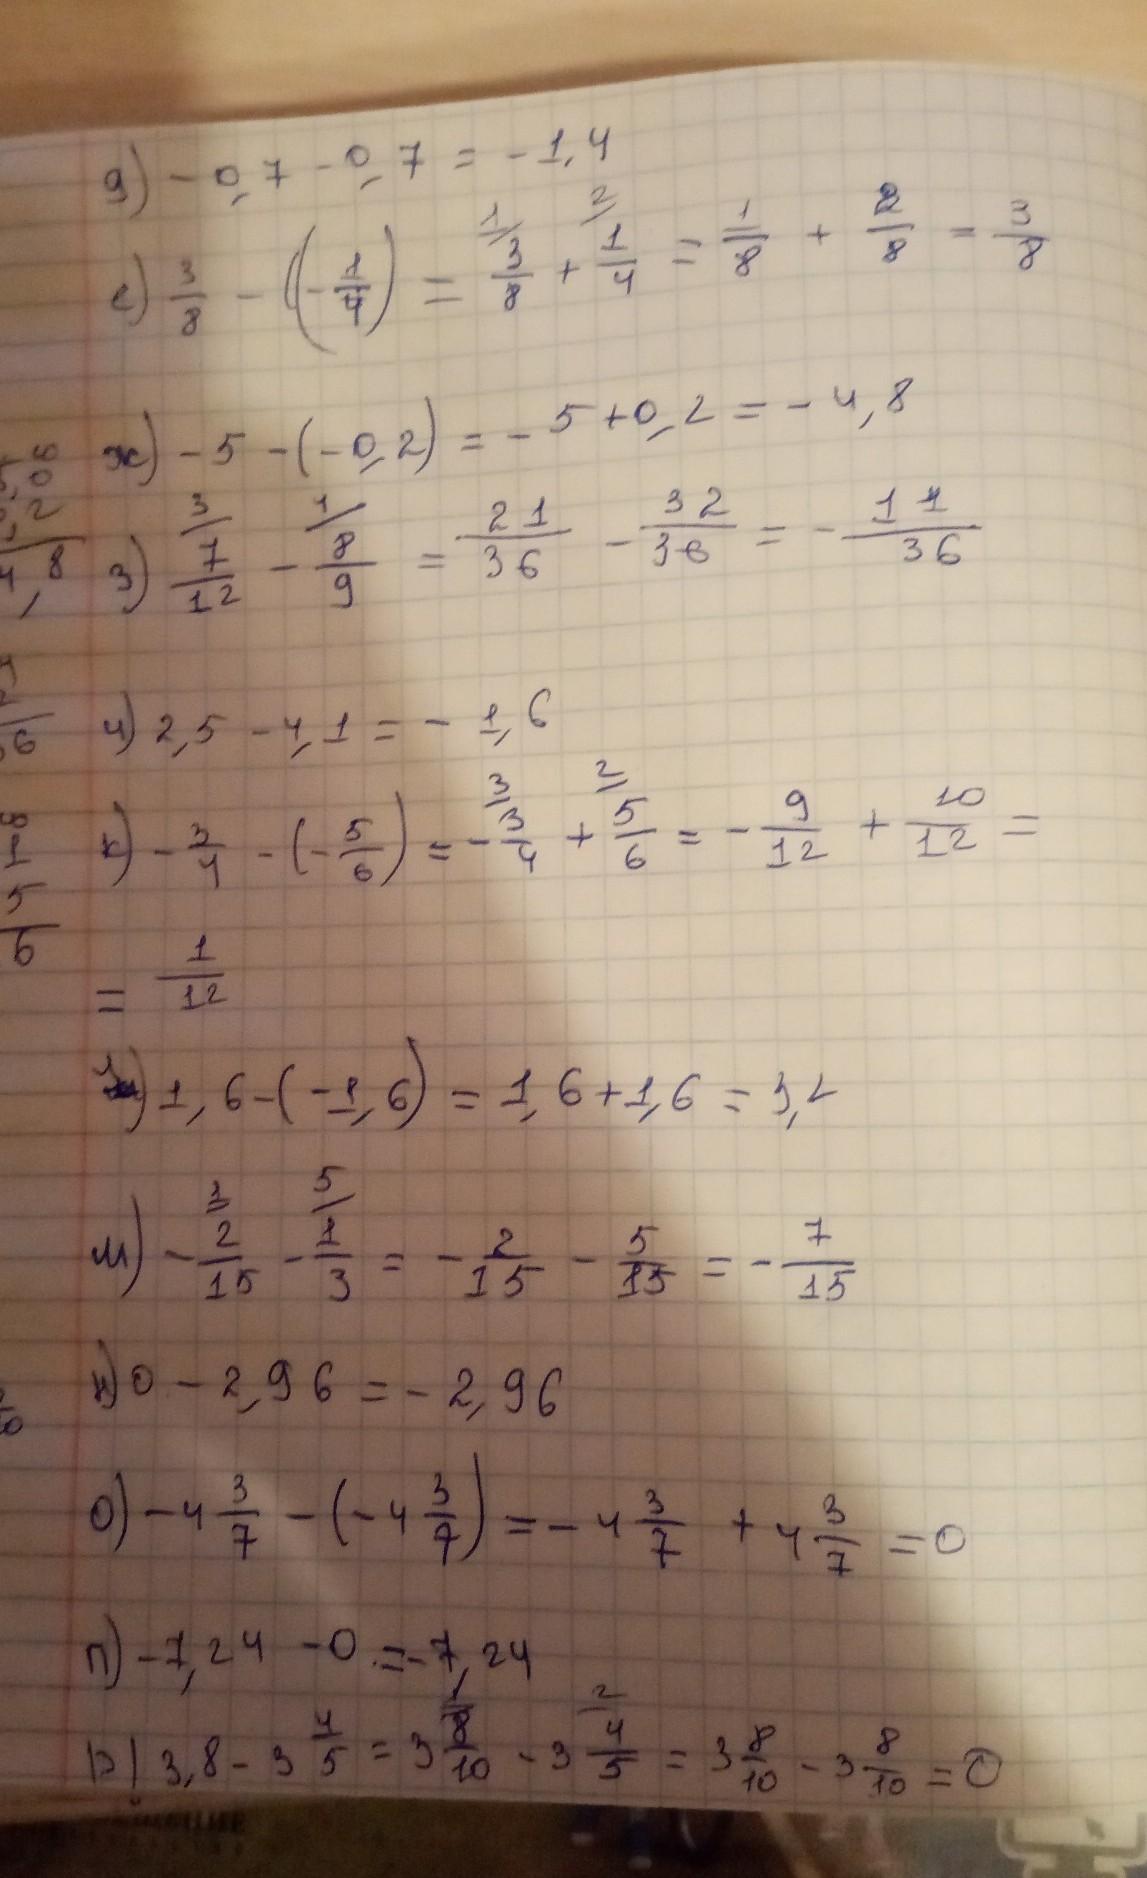 д) -0,7 - 0,7 = -1,4
е) 3/8 - (-1/4) = 3/8 + 1/4 = 1/8 + 2/8 = 3/8
ж) -5 - (-0,2) = -5 + 0,2 = -4,8
з) 7/12 - 8/9 = 21/36 - 32/36 = - 11/36
и) 2,5 - 4,1 = - 1,6
к) - 3/4 - (- 5/6) = - 3/4 + 5/6 = - 9/12 + 10/12 =
= 1/12
1,6 - (-1,6) = 1,6 + 1,6 = 3,2
м) - 2/15 - 1/3 = - 2/15 - 5/15 = - 7/15
н) 0 - 2,96 = - 2,96
о) -4 3/7 - (-4 3/7) = -4 3/7 + 4 3/7 = 0
п) -7,24 - 0 = -7,24
р) 3,8 - 3 4/5 = 3 8/10 - 3 4/5 = 3 8/10 - 3 8/10 = 0